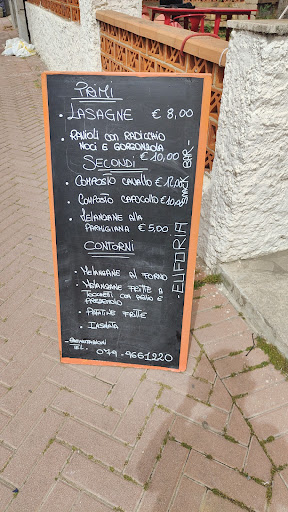 PRIMI
· LASAGNE € 8,00
· RAVIOLI CON RADICCHIO
NOCI E GORGONZOLA
€ 10,00
SECONDI
· COMPOSTO CAVALLO € 12,00
· COMPOSTO CAPOCOLLO € 10,00
· MELANZANE ALLA
PARMIGIANA € 5,00
CONTORNI
· MELANZANE AL FORNO
· MELANZANE FRITTE A
TOCCHETTI CON AGLIO E
PREZZEMOLO
· PATATINE FRITTE
· INSALATA
- PRENOTAZIONI
TEL. 079-9661220
- EUFORIA SNACK BAR -